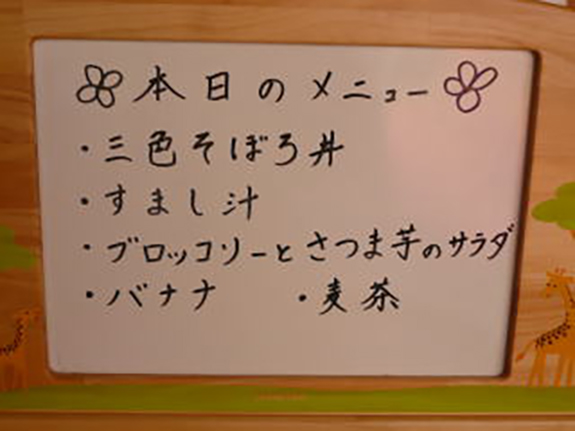 本日のメニュー
・三色そぼろ丼
・すまし汁
・ブロッコリーとさつま芋のサラダ
・バナナ ・麦茶